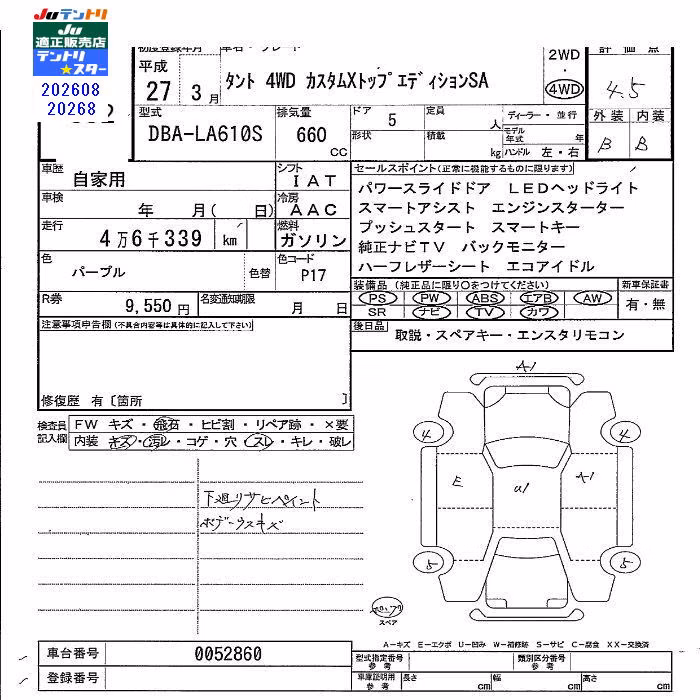 Juテントリ
Ju
適正販売店
テントリ
★スター
202608
20268
初度登録年月
車名・グレード
平成
27 3月
タント 4WD カスタムXトップエディションSA
2WD
・
4WD
評価点
4.5
外装 内装
B B
型式
DBA-LA610S
排気量
660
CC
ドア 5
形状
定員 人
積載 kg
ディーラー・並行
モデル年式 年
ハンドル 左・右
車歴
自家用
シフト
IAT
車検
年 月( 日)
冷房
AAC
走行
4万6千339 km
燃料
ガソリン
色
パープル
色替
色コード
P17
R券
9,550円
名変通知期限
月 日
セールスポイント(正常に機能するものに限ります)
パワースライドドア LEDヘッドライト
スマートアシスト エンジンスターター
プッシュスタート スマートキー
純正ナビTV バックモニター
ハーフレザーシート エコアイドル
装備品(純正品に限り○をつけてください)
PS PW ABS エアB AW
SR ナビ TV カワ
新車保証書
有・無
後日品
取説・スペアキー・エンスタリモコン
注意事項申告欄(不具合内容等は具体的に記入して下さい)
修復歴 有〔箇所 〕
検査員記入欄
FW キズ・飛石・ヒビ割・リペア跡・×要
内装 キズ・汚レ・コゲ・穴・スレ・キレ・破レ
下廻りサビペイント
ボデーウスキズ
A1
4 4
E U1 A1
5 5
スペア
A-キズ E-エクボ U-凹み W-補修跡 S-サビ C-腐食 XX-交換済
車台番号 0052860
登録番号
型式指定番号
参考
類別区分番号
参考
車庫証明用
参考
長さ cm
幅 cm
高さ cm